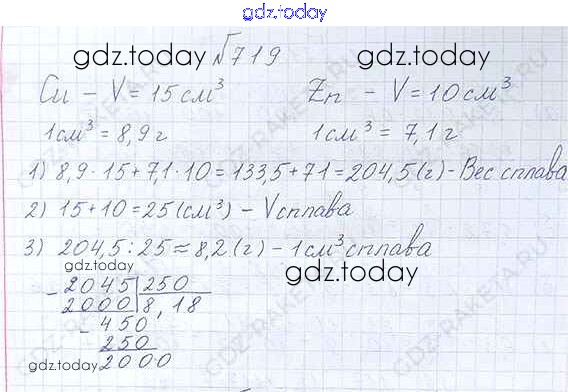 gdz.today
gdz.today №719 gdz.today
Cu - V = 15 см³ Zn - V = 10 см³
1 см³ = 8,9 г 1 см³ = 7,1 г
1) 8,9 · 15 + 7,1 · 10 = 133,5 + 71 = 204,5 (г) - Вес сплава
2) 15 + 10 = 25 (см³) - V сплава
3) 204,5 : 25 ≈ 8,2 (г) - 1 см³ сплава
gdz.today gdz.today
- 2045 | 250
2000 | 8,18
- 450
250
gdz.today 2000